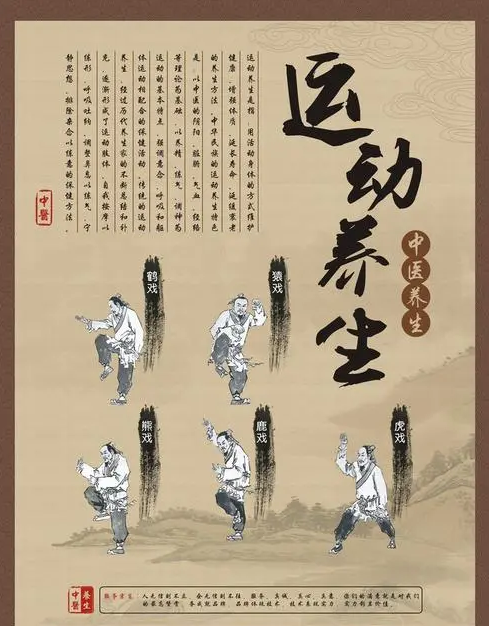 运动养生
中医养生
运动养生是指，用活动身体的方式维护
健康、增强体质、延长寿命、延缓衰老
的养生方法。中华民族的运动养生特色
是，以中医的阴阳、脏腑、气血、经络
等理论为基础，以养精、练气、调神为
运动的基本特点，强调意念、呼吸和躯
体运动相配合的保健活动。传统的运动
养生，经过历代养生家的不断总结和补
充，逐渐形成了运动肢体、自我按摩以
练形，呼吸吐纳、调整鼻息以练气，宁
静思想、排除杂念以练意的保健方法。
中醫
鹤戏
猿戏
熊戏
鹿戏
虎戏
中醫
养生
人无信则不立 服务、真诚、真心、真意、你们的满意就是对我们
的最高赞誉 技术 实力创立价值。